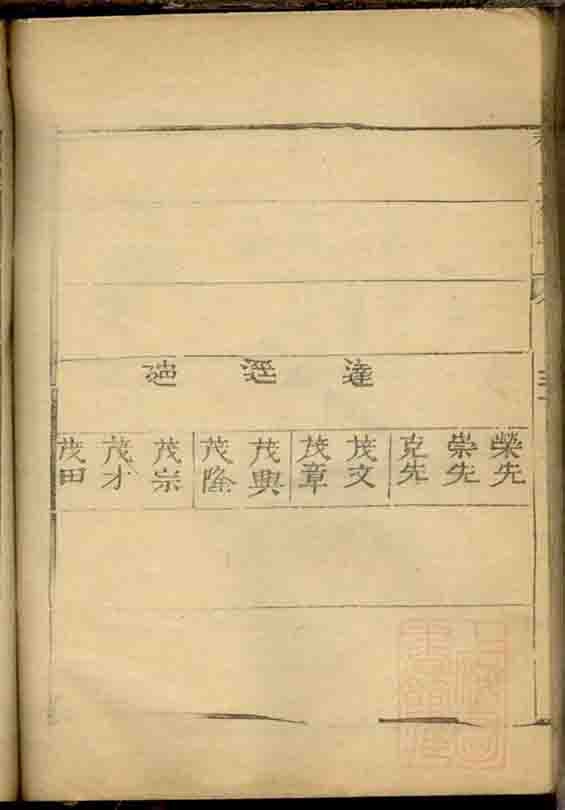 達
逕
廸
榮先
崇先
克先
茂文
茂章
茂興
茂隆
茂宗
茂才
茂田